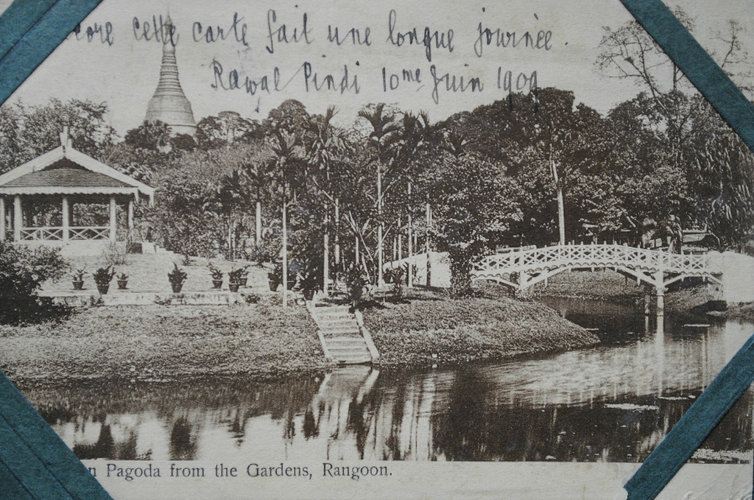 core cette carte fait une longue journèe.
Rawal Pindi 10me Juin 1909
n Pagoda from the Gardens, Rangoon.